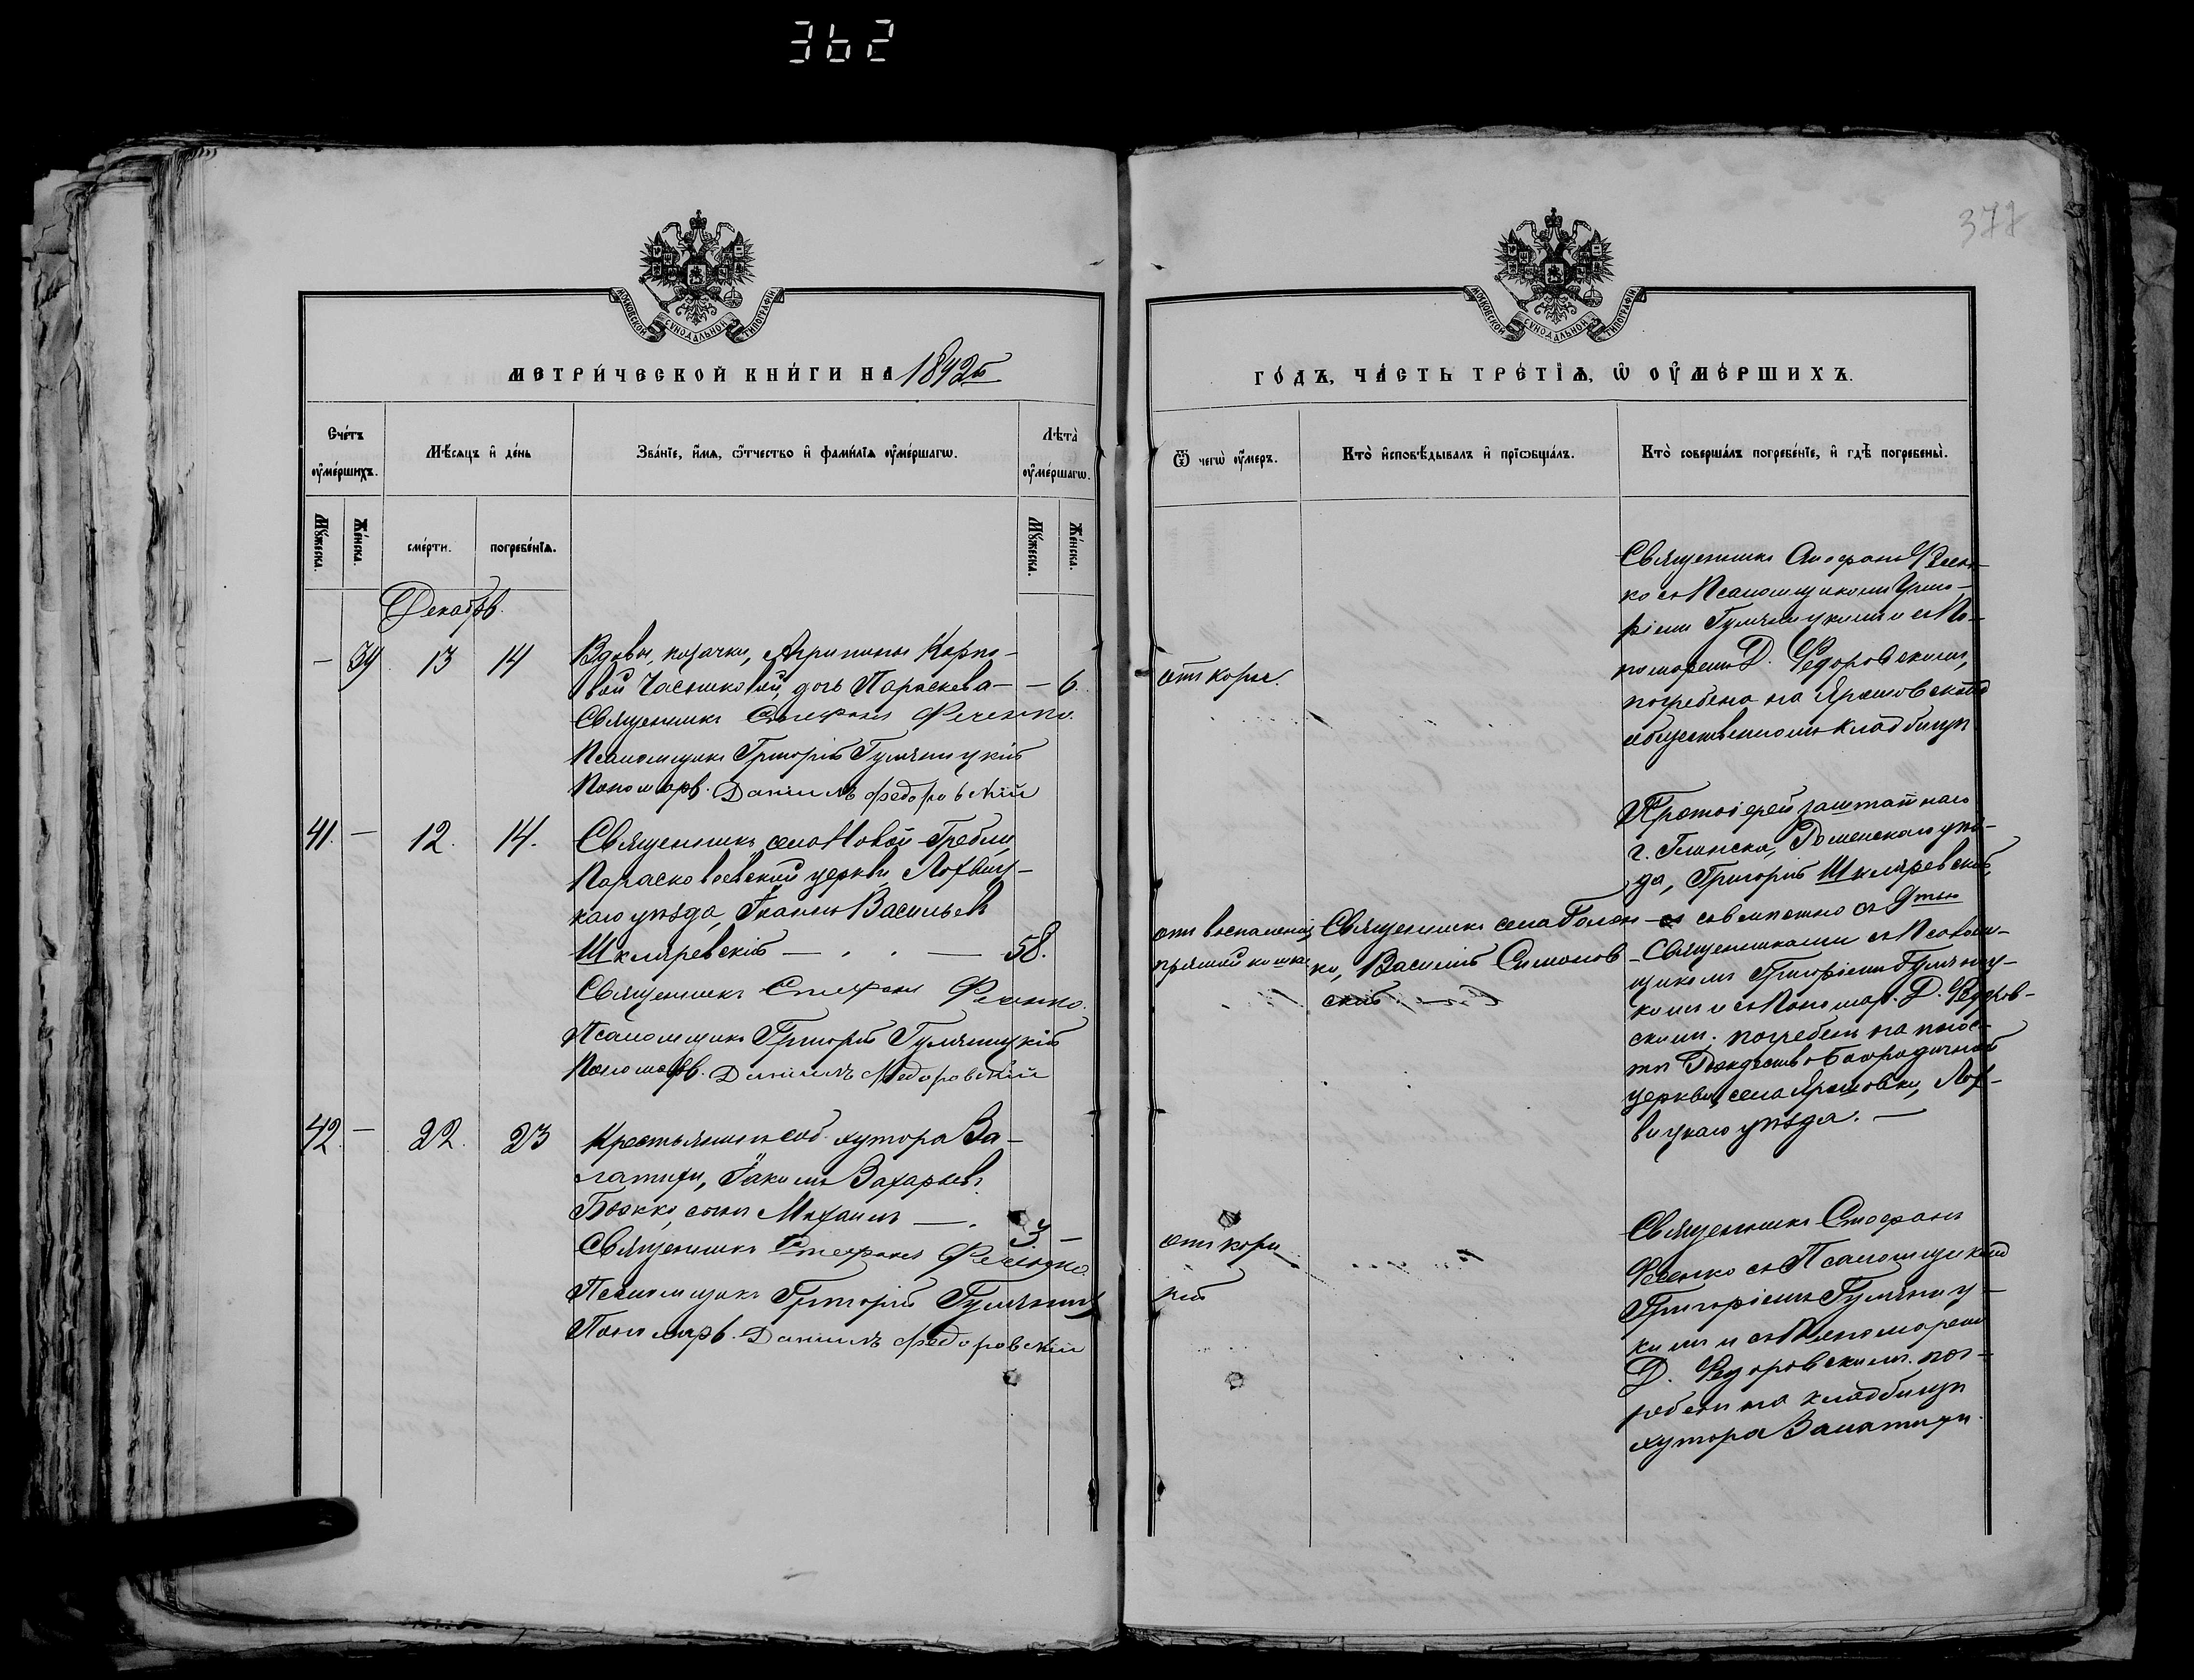 362
377
МОСКОВСКОЙ СѴНОДАЛЬНОЙ ТИПОГРАФІИ
МОСКОВСКОЙ СѴНОДАЛЬНОЙ ТИПОГРАФІИ
МЕТРИ́ЧЕСКОЙ КНИ́ГИ НА 1892й
ГО́ДЪ, ЧА́СТЬ ТРЕ́ТІѦ, Ѡ ОУ҆МЕ́РШИХЪ.
Сче́тъ оу҆ме́ршихъ.
Мѣ́сѧцъ и҆ де́нь
Зва́нїе, и҆́мѧ, ѻ҆́тчество и҆ фами́лїѧ оу҆ме́ршагѡ.
Лѣта̀ оу҆ме́ршагѡ.
Ѿ чегѡ̀ оу҆́меръ.
Кто̀ и҆сповѣ́дывалъ и҆ прїѡбща́лъ.
Кто̀ соверша́лъ погребе́нїе, и҆ гдѣ̀ погребены̀.
Мꙋ́жеска.
Же́нска.
сме́рти.
погребе́нїѧ.
Мꙋ́жеска.
Же́нска.
Декабрь.
— 39 13 14 Вдовы, козачки, Агрипины Карпо-
вой Часныковой, дочь Параскева — — 6.
Священникъ Стефанъ Фесенко.
Псаломщикъ Григорій Гумяницкій
Пономарь. Даніилъ Федоровскій
от кори.
Священникъ Стефанъ Фесен-
ко съ Псаломщикомъ Григо-
ріемъ Гумяницкимъ и съ По-
номаремъ Д. Федоровскимъ,
погребена на Ярошовскомъ
общественномъ кладбищѣ
41. — 12. 14. Священникъ села Новой-Гребли,
Параскевіевской церкви, Лохвиц-
каго уѣзда, Іоаннъ Васильевъ
Шкляревскій — 58.
Священникъ Стефанъ Фесенко.
Псаломщикъ Григорій Гумяницкій
Пономарь. Даніилъ Федоровскій
от воспаленія
прямой кишки
Священникъ села Голен-
ки, Василій Симонов-
скій
Протоіерей заштатнаго
г. Глинска, Роменскаго уѣз-
да, Григорій Шкляревскій,
совмѣстно съ 9тью
Священниками съ Псалом-
щикомъ Григоріемъ Гумяниц-
кимъ и съ Пономар. Д. Федоров-
скимъ; погребенъ на погос-
тѣ Рождество-Богородичной
церкви, села Ярошовки, Лох-
вицкаго уѣзда. —
42. — 22. 23 Крестьянина соб. хутора За-
латихи, Іакима Захарьева
Божко, сынъ Михаилъ — 3 —
Священникъ Стефанъ Фесенко.
Псаломщикъ Григорій Гумяниц
Пономарь. Даніилъ Федоровскій
от кори
кій
Священникъ Стефанъ
Фесенко съ Псаломщикомъ
Григоріемъ Гумяниц-
кимъ и съ Пономаремъ
Д. Федоровскимъ. пог-
ребенъ на кладбищѣ
хутора Залатихи.